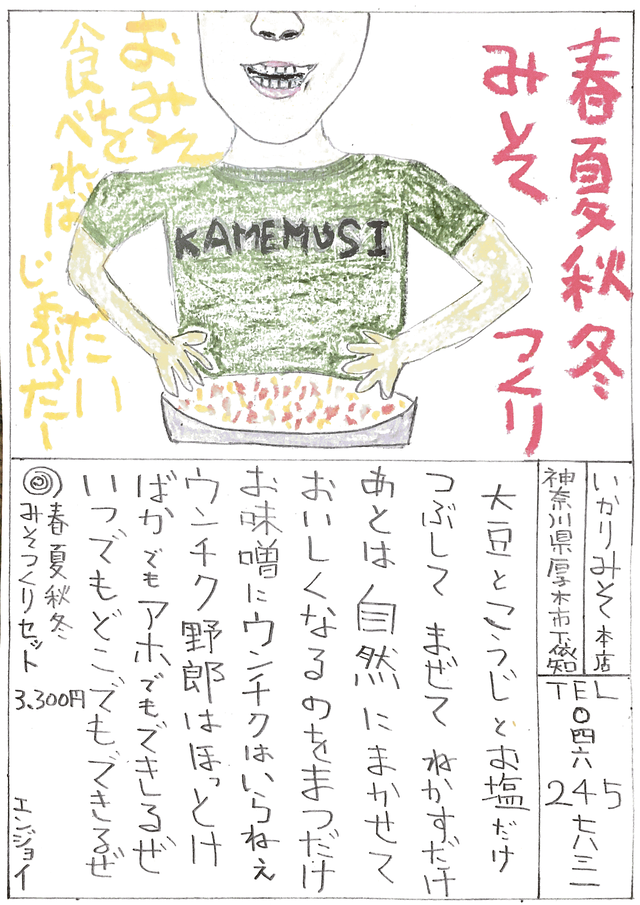 春夏秋冬
みそ つくり
KAMEMUSI
おみそ
を
食べれば
だい
じょぶだー
いかりみそ本店
神奈川県厚木市下依知
TEL
〇四六
245
七八三一
大豆とこうじとお塩だけ
つぶして まぜて ねかすだけ
あとは自然にまかせて
おいしくなるのをまつだけ
お味噌にウンチクはいらねぇ
ウンチク野郎はほっとけ
ばかでもアホでもできるぜ
いつでもどこでもできるぜ
春夏秋冬
みそつくりセット 3.300円
エンジョイ